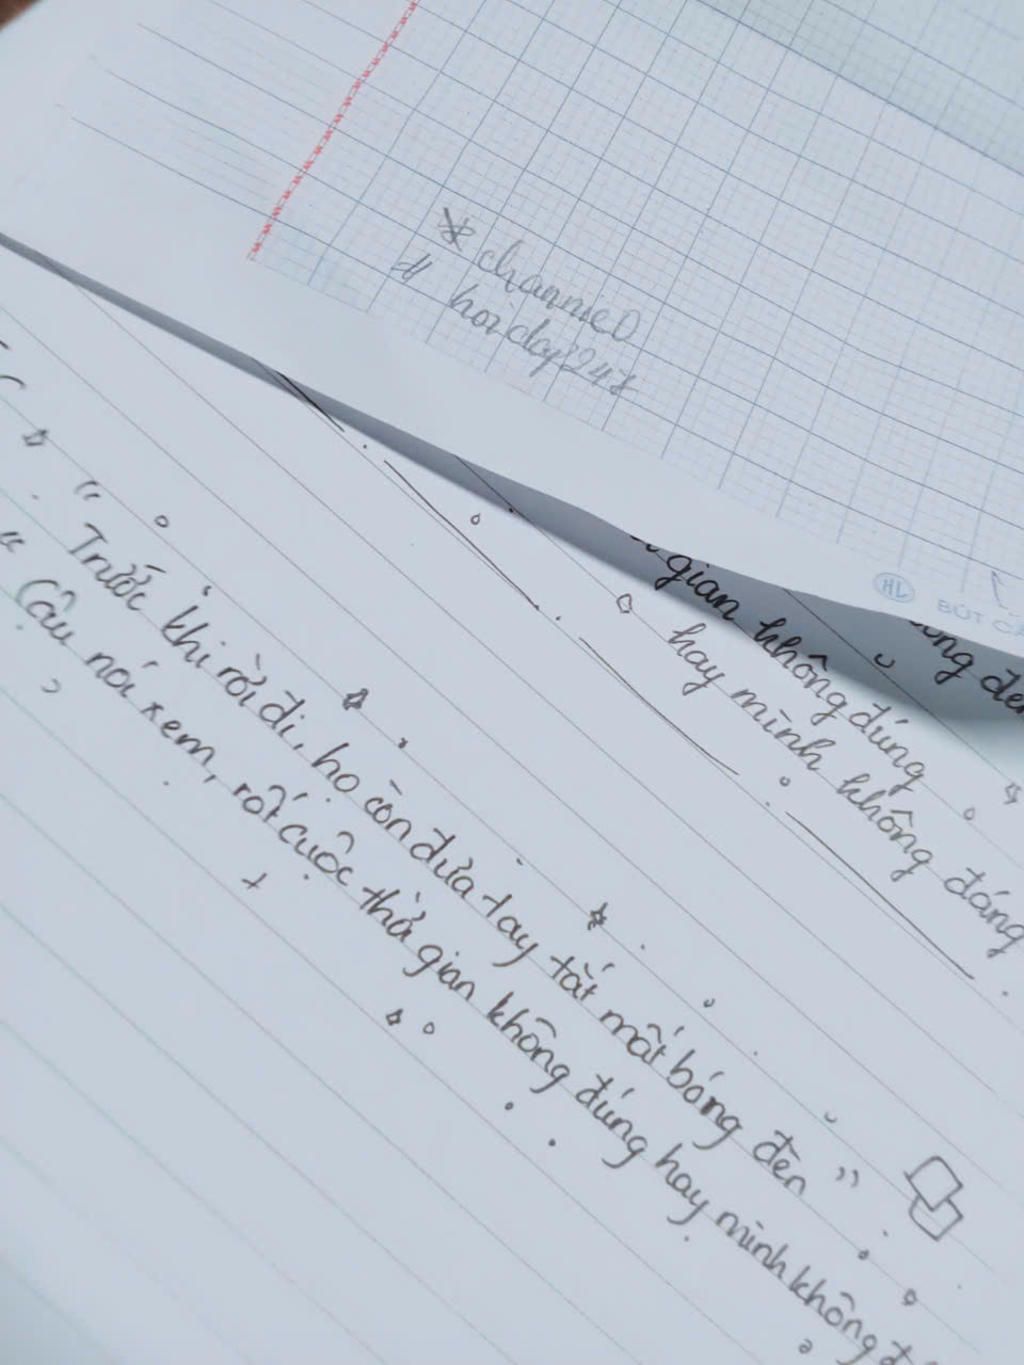 * channieD
hơi day3247
gian không đúng
hay mình không đáng
" Trước khi rời đi, họ còn đưa tay tắt mất bóng đèn "
" Cậu nói xem, rốt cuộc thời gian không đúng hay mình không
HL BÚT